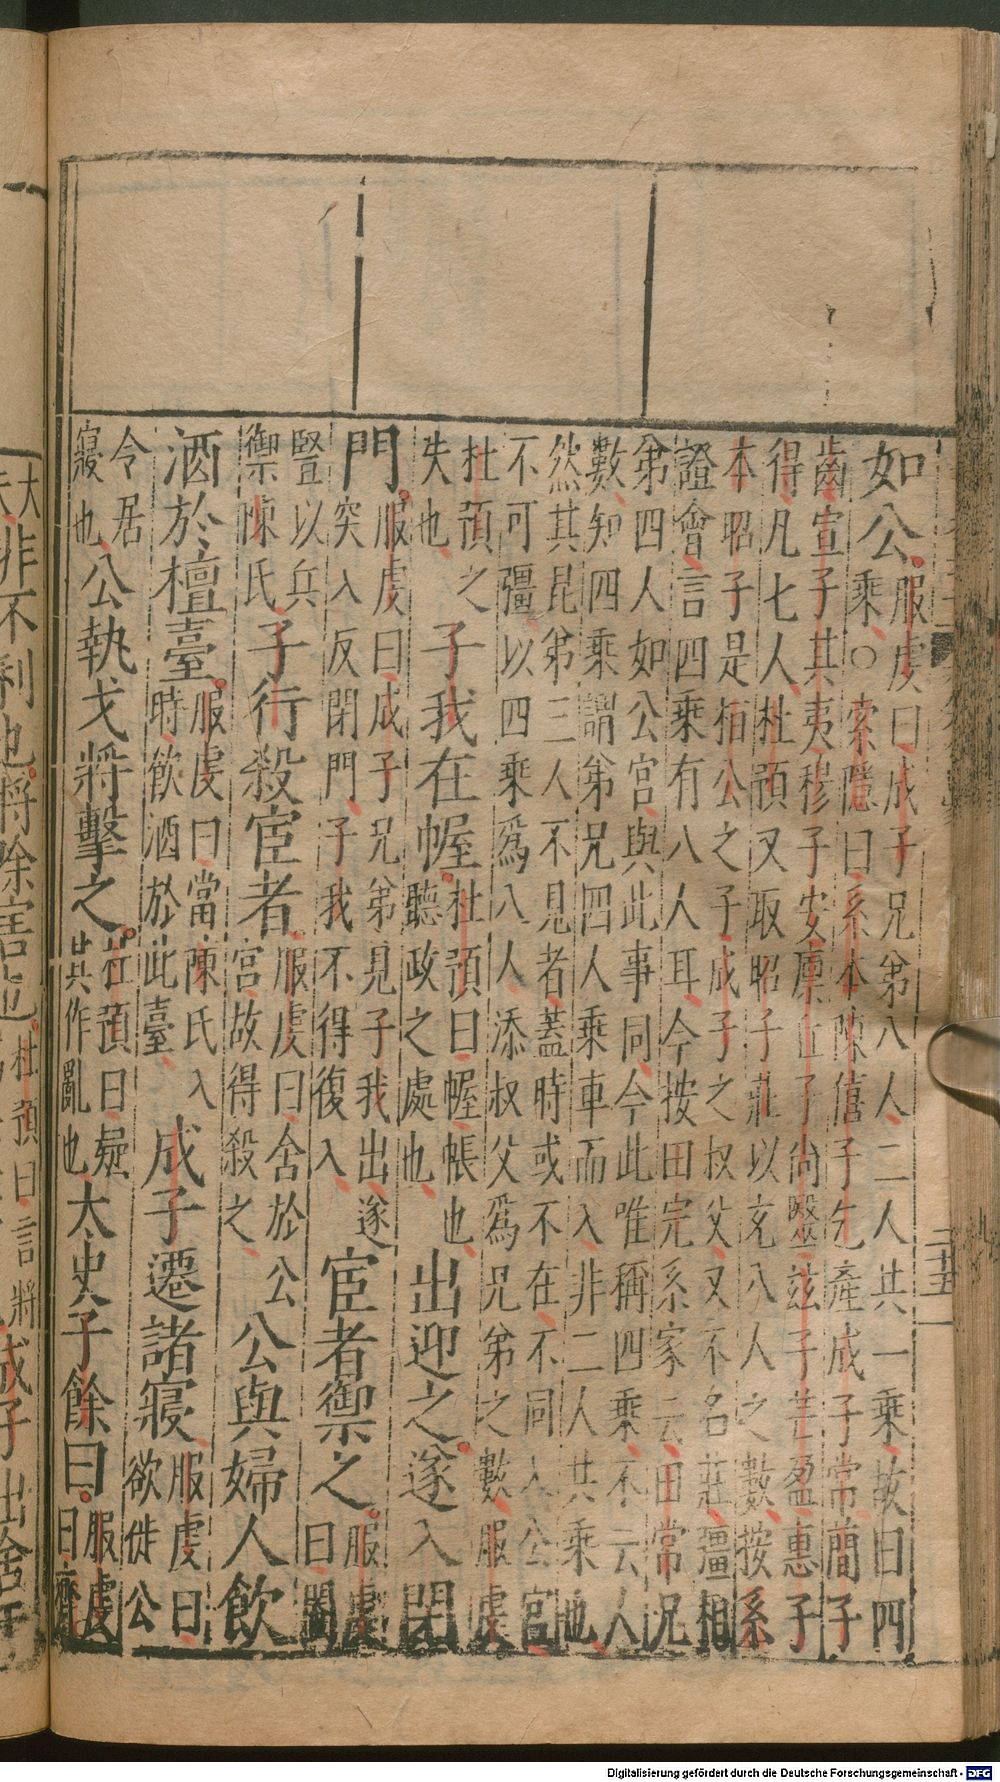 如公服虔曰成子兄弟八人二人共一乘故曰四
乘○索隱曰系本陳僖子乞產成子常簡子
齒宣子其夷穆子安廩丘子尚毉茲子芒盈惠子
得凡七人杜預又取昭子莊以充八人之數按系
本昭子是桓公之子成子之叔父又不名莊彊相
證會言四乘有八人耳今按田完系家云田常兄
弟四人如公宮與此事同今此唯稱四乘不云人
數知四乘謂弟兄四人乘車而入非二人共乘也
然其昆弟三人不見者蓋時或不在不同入公宮
不可彊以四乘爲八人添叔父爲兄弟之數服虔
杜預之失也子我在幄杜預曰幄帳也聽政之處也出迎之遂入閉
門服虔曰成子兄弟見子我出遂突入反閉門子我不得復入宦者禦之服虔曰閹
豎以兵禦陳氏子行殺宦者服虔曰舍於公宮故得殺之公與婦人飲
酒於檀臺服虔曰當陳氏入時飲酒於此臺成子遷諸寢服虔曰欲徙公
令居寢也公執戈將擊之杜預曰疑其作亂也太史子餘曰服虔曰齊
大夫非不利也將除害也杜預曰言將
成子出舍于
三十五
Digitalisierung gefördert durch die Deutsche Forschungsgemeinschaft - DFG